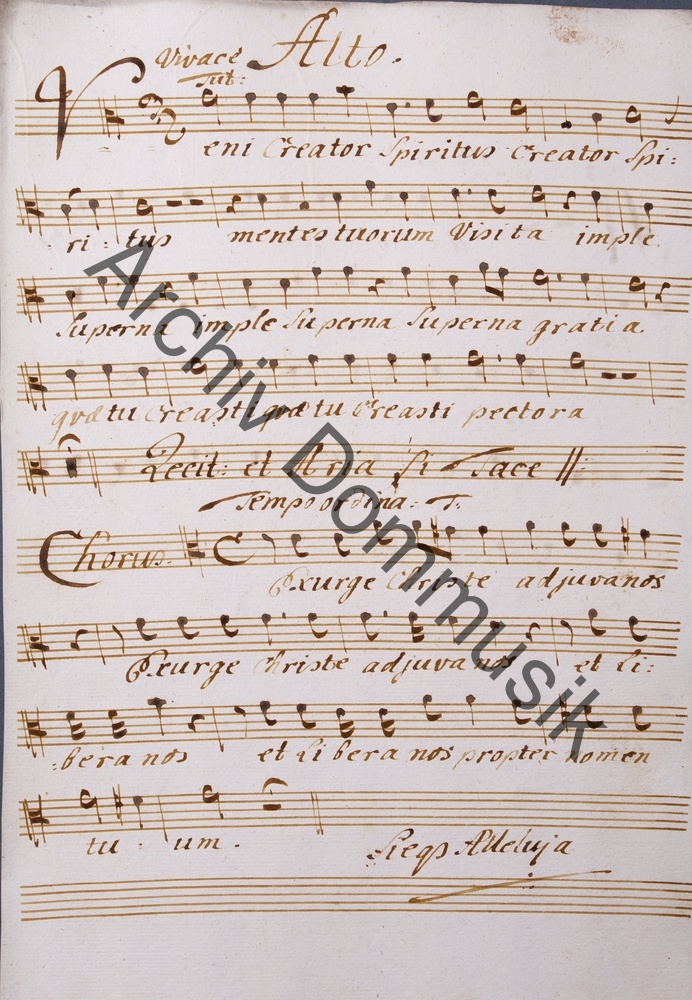 Vivace Alto.
Tut:
Veni Creator Spiritus Creator Spi:
ri: tus mentes tuorum Visita imple
Superna imple Superna Superna gratia
quæ tu Creasti quæ tu Creasti pectora
Recit: et Aria Si Tace
Tempo ordina: T.
Chorus. Exurge Christe adjuva nos
Exurge Christe adjuva nos et Li:
:bera nos et Libera nos propter nomen
tu: um.
Alleluja
Archiv Dommusik